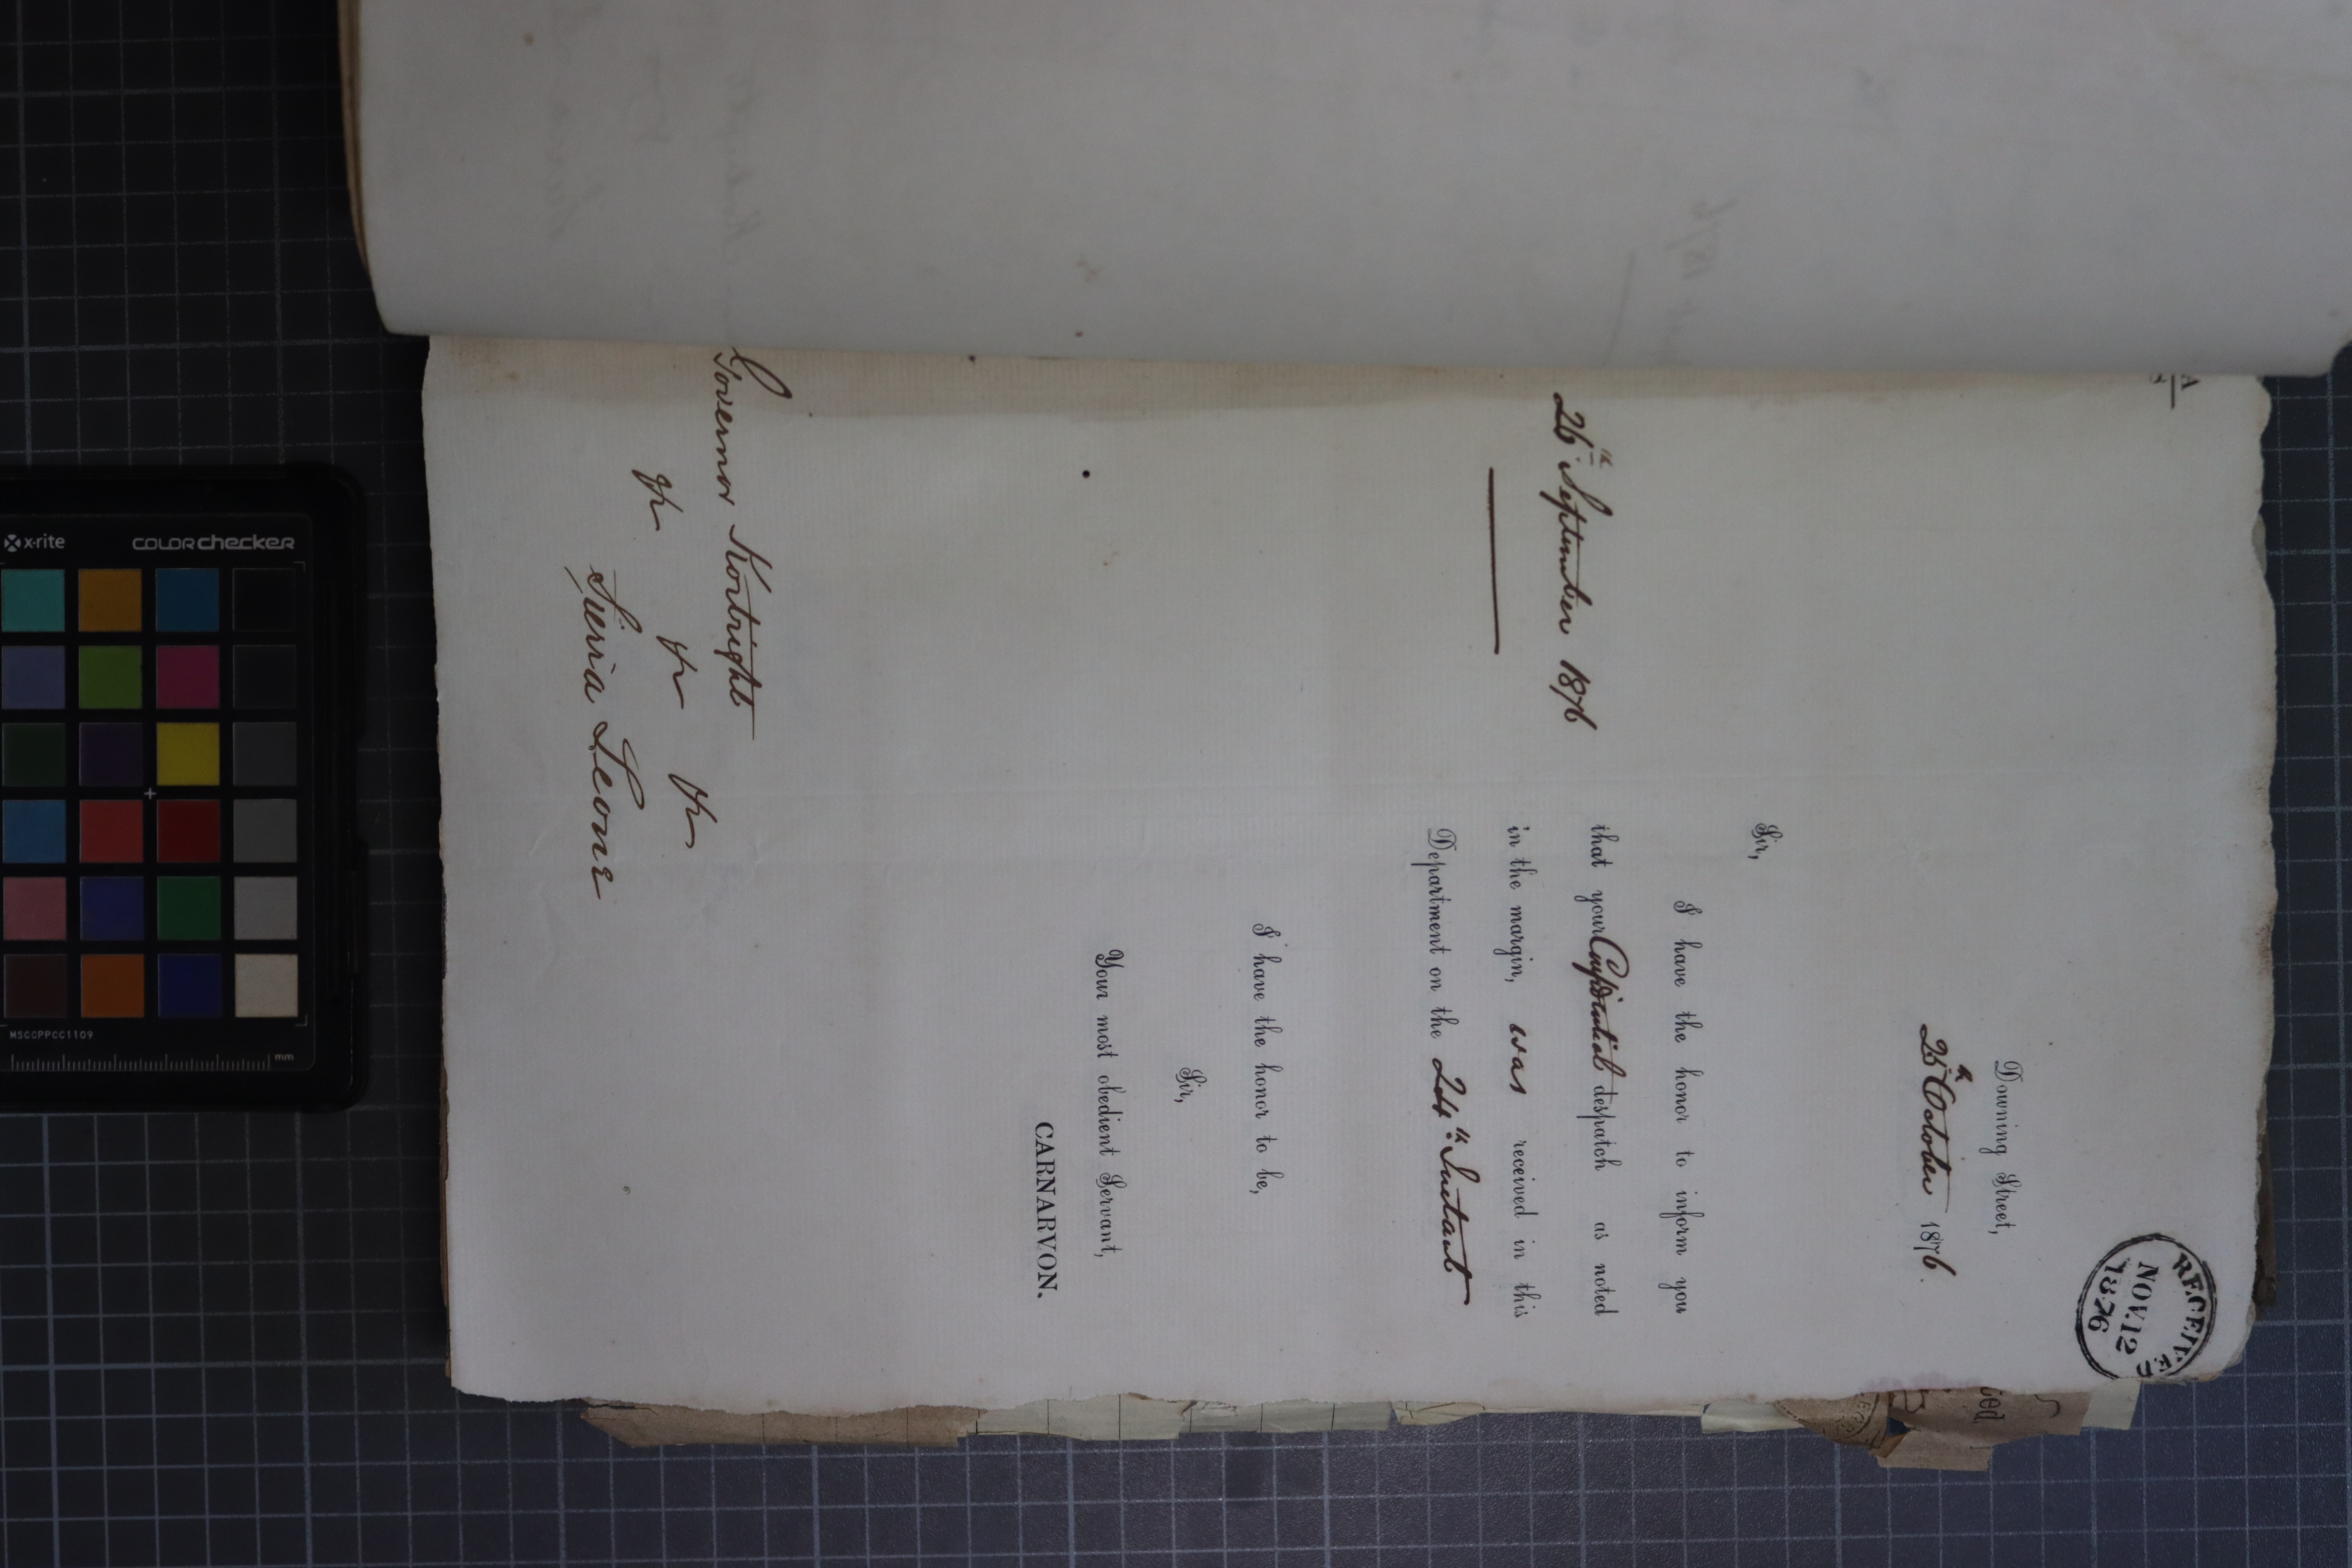 RECEIVED
NOV. 12
1876
Downing Street,
25th October 1876.
Sir,
I have the honor to inform you
26th September 1876
that your Confidential despatch as noted
in the margin, was received in this
Department on the 24th Instant
I have the honor to be,
Sir,
Your most obedient Servant,
CARNARVON.
Governor Kortright
&c &c &c
Sierra Leone
x-rite
colorchecker
MSCCPPCC1109
mm